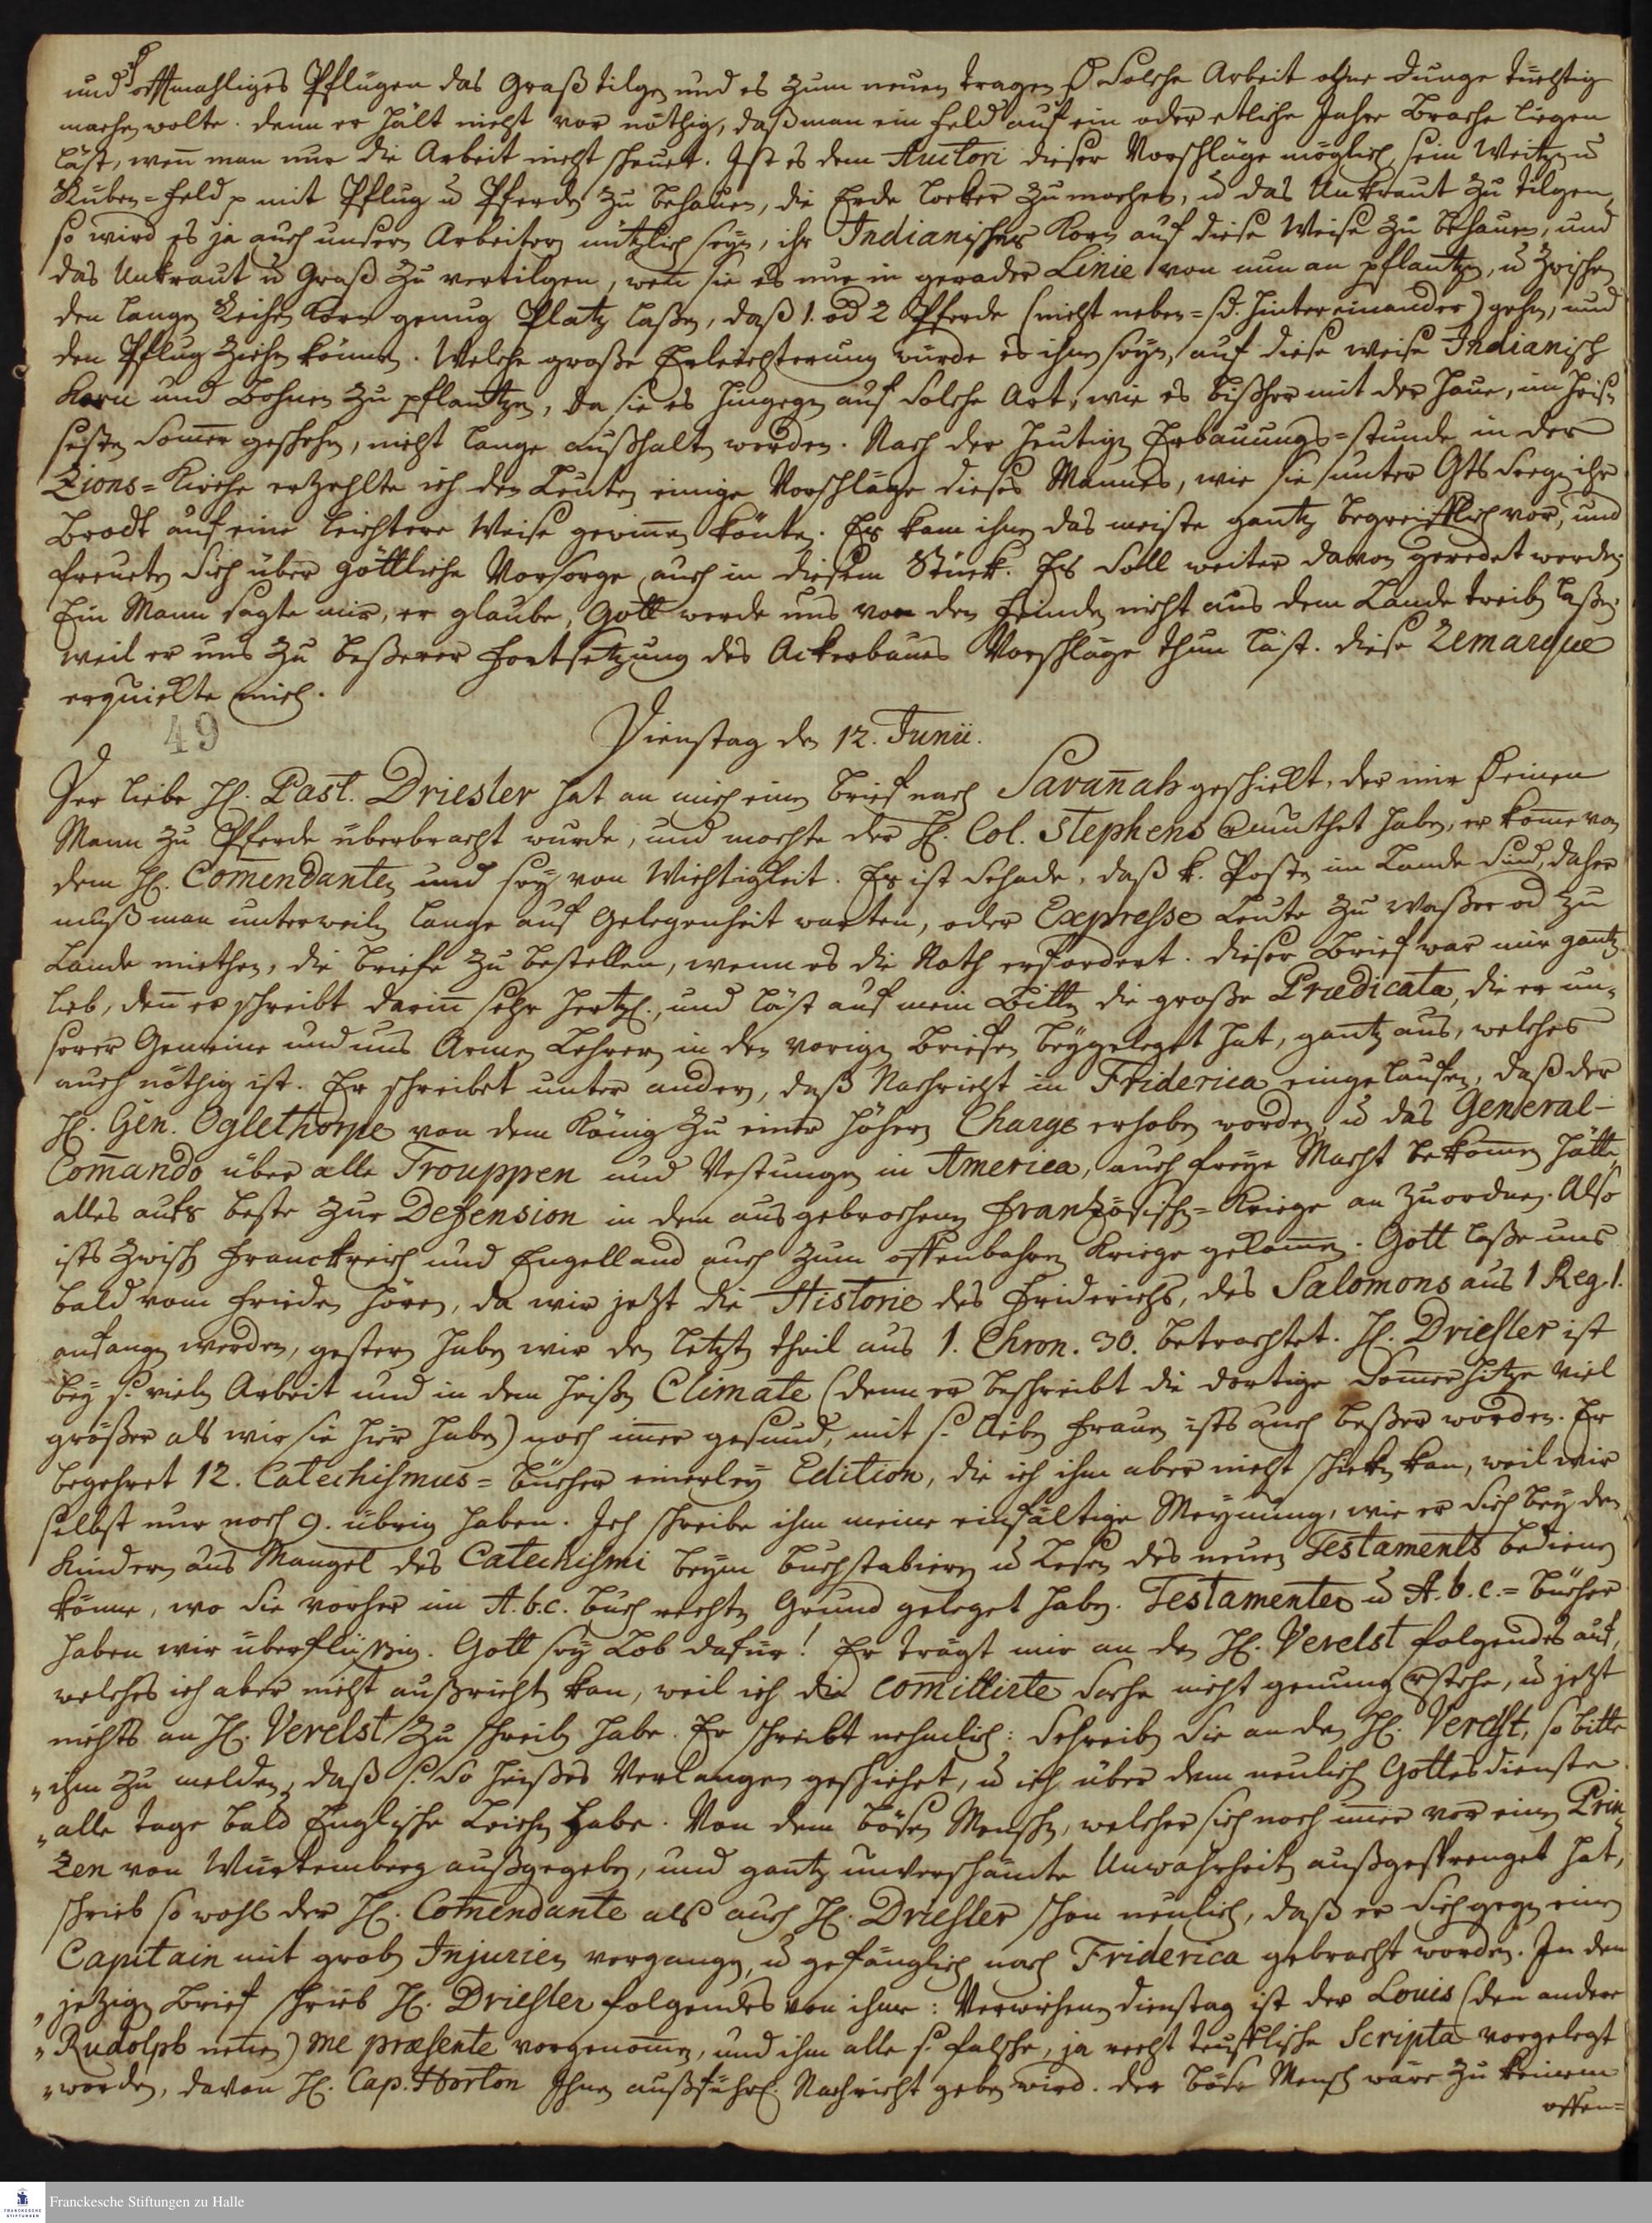 und offtmahliges Pflügen das Graß tilgen und es zum neuen tragen d. solche Arbeit ohne Dunge tüchtig
machen wolte. Denn er hält nicht vor nöthig, daß man ein Feld auf ein oder etliche Jahre Brache liegen
läst, weñ man nur die Arbeit nicht scheuet. Ist es dem Auctori dieser Vorschläge möglich, sein Weitzen u
Rüben=Feld p mit Pflug u Pferden zu behauen, die Erde locker zu machen, u das Unkraut zu tilgen,
so wird es ja auch unsern Arbeitern nützlich seyn, ihr Indianisches Korn auf diese Weise zu behauen, und
das Unkraut u Graß zu vertilgen, weñ sie es nur in gerader Linie von nun an pflantzen, u zwischen
den langen Reihen Korn genug Platz laßen, daß 1. od 2 Pferde (nicht neben= sd. hinter einander) gehen, und
den Pflug ziehen können. Welche große Erleichterung würde es ihnen seyn, auf diese weise Indianisch
Korn und Bohnen zu pflantzen, da sie es hingegen auf solche Art, wie es bißher mit der Haue, im heis=
sesten Som̃er geschehen, nicht lange außhalten werden. Nach der heutigen Erbauungs=stunde in der
Zions=Kirche erzehlte ich den Leuten einige Vorschläge dieses Mannes, wie sie unter Gottes Seegen ihr
Brodt auf eine leichtere Weise gewiñen könten. Es kam ihnen das meiste gantz begreifflich vor, und
freueten sich über göttliche Vorsorge auch in diesem Stück. Es soll weiter davon geredet werden.
Ein Mann sagte mir, er glaube, Gott werde uns von den Feinden nicht aus dem Lande treiben laßen,
weil er uns zu beßerer Fortsetzung des Ackerbaues Vorschläge thun läst. Diese Remarque
erquickte mich.
49
Dienstag den 12. Junii.
Der liebe H. Past. Driesler hat an mich einen Brief nach Savañah geschickt, der mir d. einen
Mann zu Pferde überbracht wurde, und mochte der H. Col. Stephens vermuthet haben, er kom̃e von
dem H. Com̃endanten und sey von Wichtigkeit. Es ist Schade, daß k. Posten im Lande sind, daher
muß man unterweilen lange auf Gelegenheit warten, oder Expresse Leute zu Waßer od zu
Lande miethen, die Briefe zu bestellen, wenn es die Noth erfordert. Dieser Brief war mir gantz
lieb, deñ er schreibt dariñ sehr hertzl., und läst auf mein Bitten die große Prædicata, die er un=
serer Gemeine und uns Armen Lehrern in den vorigen Briefen beygeleget hat, gantz aus, welches
auch nöthig ist. Er schreibet unter andern, daß Nachricht in Friderica eingelauffen, daß der
H. Gen. Oglethorpe von dem König zu einer höhern Charge erhoben worden, u das General-
Com̃ando über alle Trouppen und Vestungen in America, auch freye Macht bekom̃en hätte,
alles aufs beste zur Defension in dem ausgebrochenen Frantzösischen=Kriege an zuordnen. Also
ists zwischen Franckreich und Engelland auch zum offenbahren Kriege gekom̃en. Gott laße uns
bald vom Frieden hören, da wir jetzt die Historie des Friderichs, des Salomons aus 1 Reg. 1.
anfangen werden, gestern haben wir den letzten theil aus 1. Chron. 30. betrachtet. H. Driesler ist
bey s. vielen Arbeit und in dem heißen Climate (denn er beschreibt die dortige Som̃erhitze viel
größer als wir sie hier haben) noch im̃er gesund, mit s. lieben Frauen ists auch beßer worden. Er
begehret 12. Catechismus=Bücher einerley Edition, die ich ihm aber nicht schicken kan, weil wir
selbst nur noch 9. übrig haben. Ich schreibe ihm meine einfältige Meynung, wie er sich bey den
Kindern aus Mangel des Catechismi beym buchstabieren u Lesen des neuen Testaments bedienen
könne, wo sie vorher im A.b.c. Buch rechten Grund geleget haben. Testamenter u A.b.c.=Bücher
haben wir überflüssig. Gott sey Lob dafür! Er trägt mir an den H. Verelst folgendes auf,
welches ich aber nicht außrichten kan, weil ich die com̃ittirte Sache nicht genung verstehe, u jetzt
nichts an H. Verelst zu schreiben habe. Er schreibt nehmlich: Schreiben Sie an den H. Verelst, so bitte
„ihm zu melden, daß s. so heißes Verlangen geschiehet, u ich über dem neulich Gottesdienste
„alle tage bald Englische Leichen habe. Von dem bösen Menschen, welcher sich noch im̃er vor einen Prin
zen von Würtemberg außgegeben, und gantz unverschämte Unwahrheiten außgesprenget hat,
schrieb so wohl der H. Com̃endante als auch H. Driesler schon neulich, daß er sich gegen einen
Capitain mit groben Injurien vergangen, u gefänglich nach Friderica gebracht worden. In dem
„jetzigen Brief schrieb H. Driesler folgendes von ihme: Verwichenen Dienstag ist der Louis (den andere
„Rudolph neñen) me præsente vorgenom̃en, und ihm alle s. falsche, ja recht teufflische Scripta vorgelegt
„worden, davon H. Cap. Horton Ihnen außführl. Nachricht geben wird. Der böse Mensch wäre zu keinem
offen=
Franckesche Stiftungen zu Halle